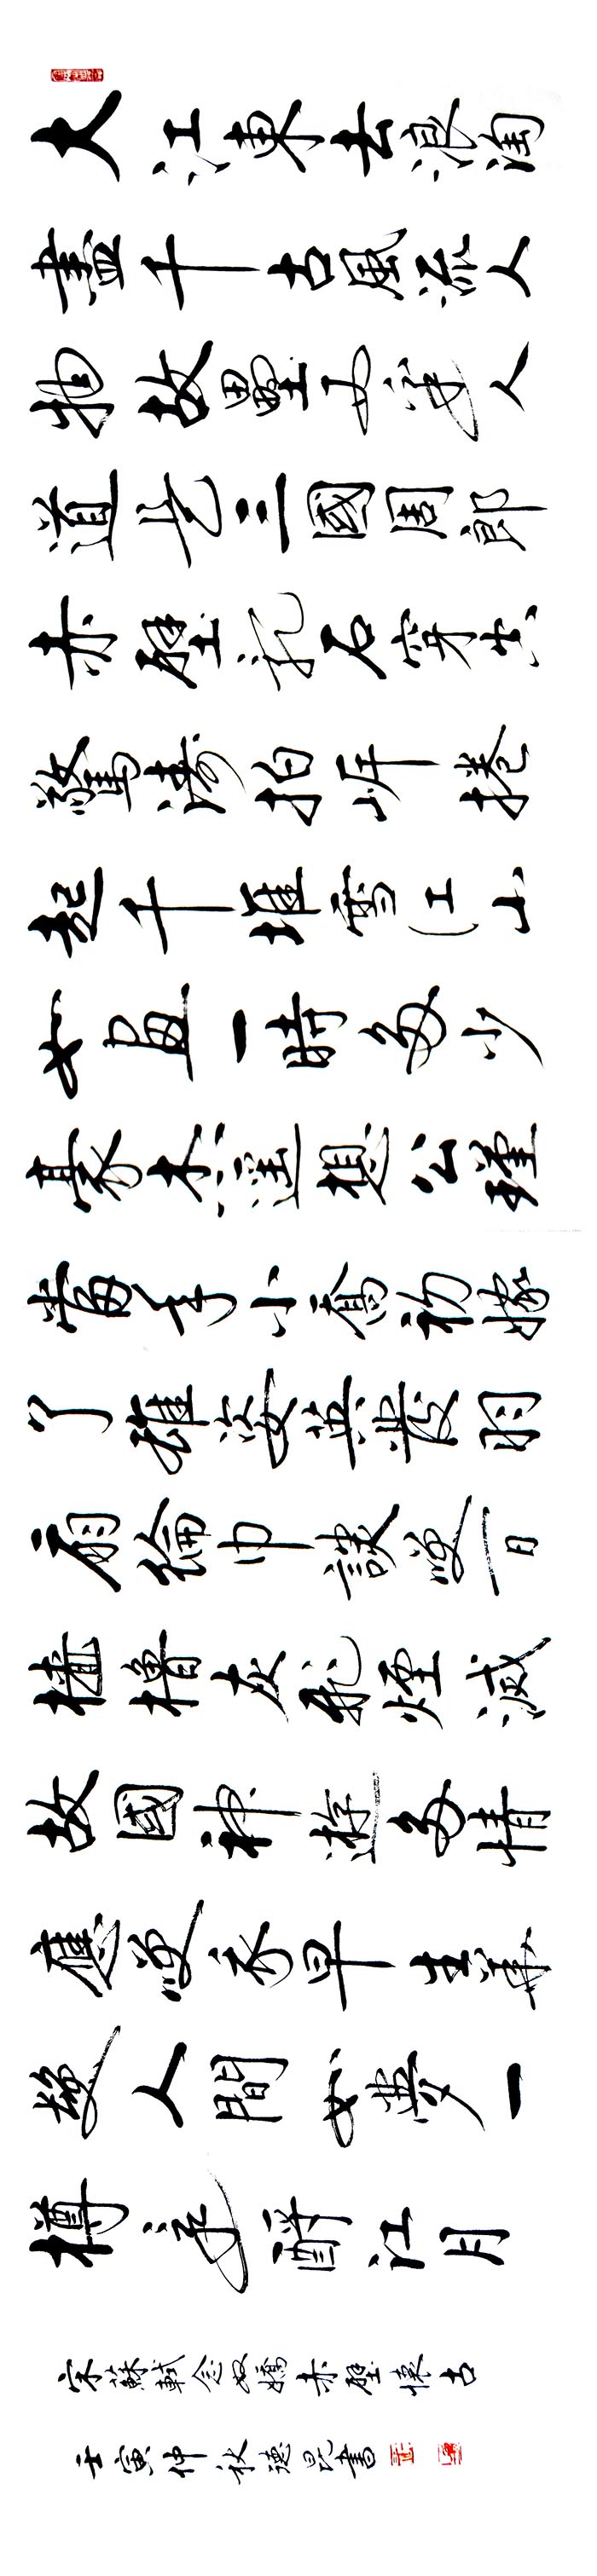 大江東去浪淘
盡千古風流人
物故壘西邊人
道是三國周郎
赤壁亂石穿空
驚濤拍岸捲
起千堆雪江山
如畫一時多少
豪杰遙想公瑾
當年小喬初嫁
了雄姿英發羽
扇綸巾談笑間
檣櫓灰飛煙滅
故國神遊多情
應笑我早生華
髮人間如夢一
樽還酹江月
宋蘇軾念奴嬌赤壁懷古
壬寅仲秋德昆書